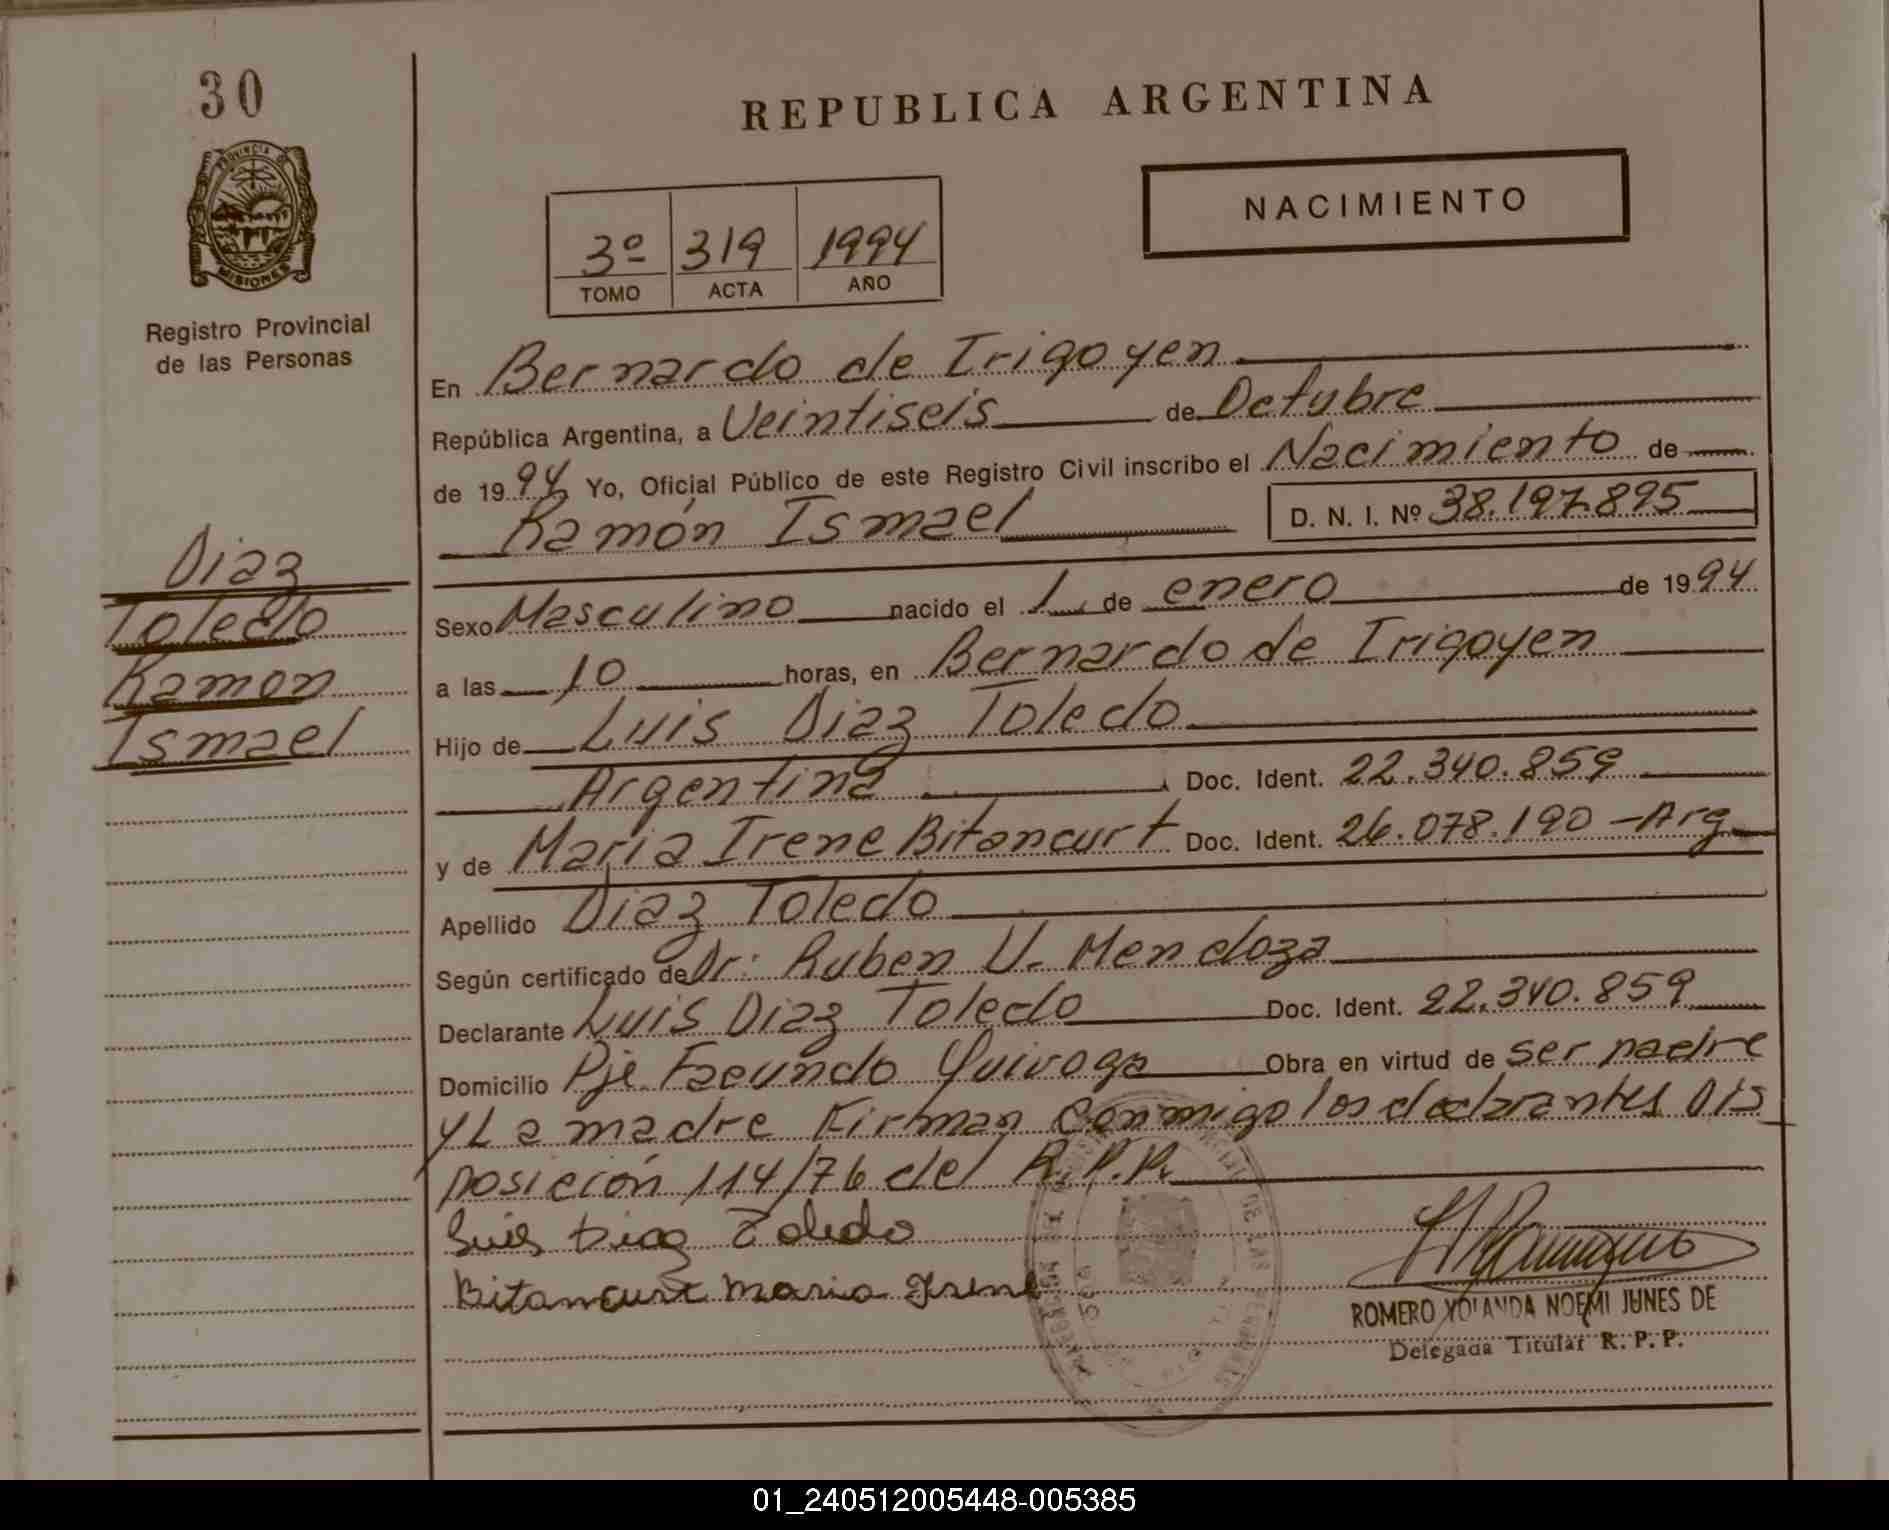 30
PROVINCIA DE
MISIONES
Registro Provincial
de las Personas
Diaz
Toledo
Ramon
Ismael
REPUBLICA ARGENTINA
NACIMIENTO
3º 319 1994
TOMO ACTA AÑO
En Bernardo de Irigoyen
República Argentina, a Veintiseis de Octubre
de 1994 Yo, Oficial Público de este Registro Civil inscribo el Nacimiento de
Ramón Ismael D. N. I. Nº 38.197.895
Sexo Masculino nacido el 1 de enero de 1994
a las 10 horas, en Bernardo de Irigoyen
Hijo de Luis Diaz Toledo
Argentina Doc. Ident. 22.340.859
y de Maria Irene Bitancurt Doc. Ident. 26.078.190 - Arg
Apellido Diaz Toledo
Según certificado de Dr. Ruben V. Mendoza
Declarante Luis Diaz Toledo Doc. Ident. 22.340.859
Domicilio Pje. Facundo Quiroga Obra en virtud de ser padre
y La madre Firman Conmigo los declarantes Dis
posición 114/76 del R.P.P.
Luis Diaz Toledo
Bitancurt Maria Irene
ROMERO YOLANDA NOEMI JUNES DE
Delegada Titular R. P. P.
01_240512005448-005385